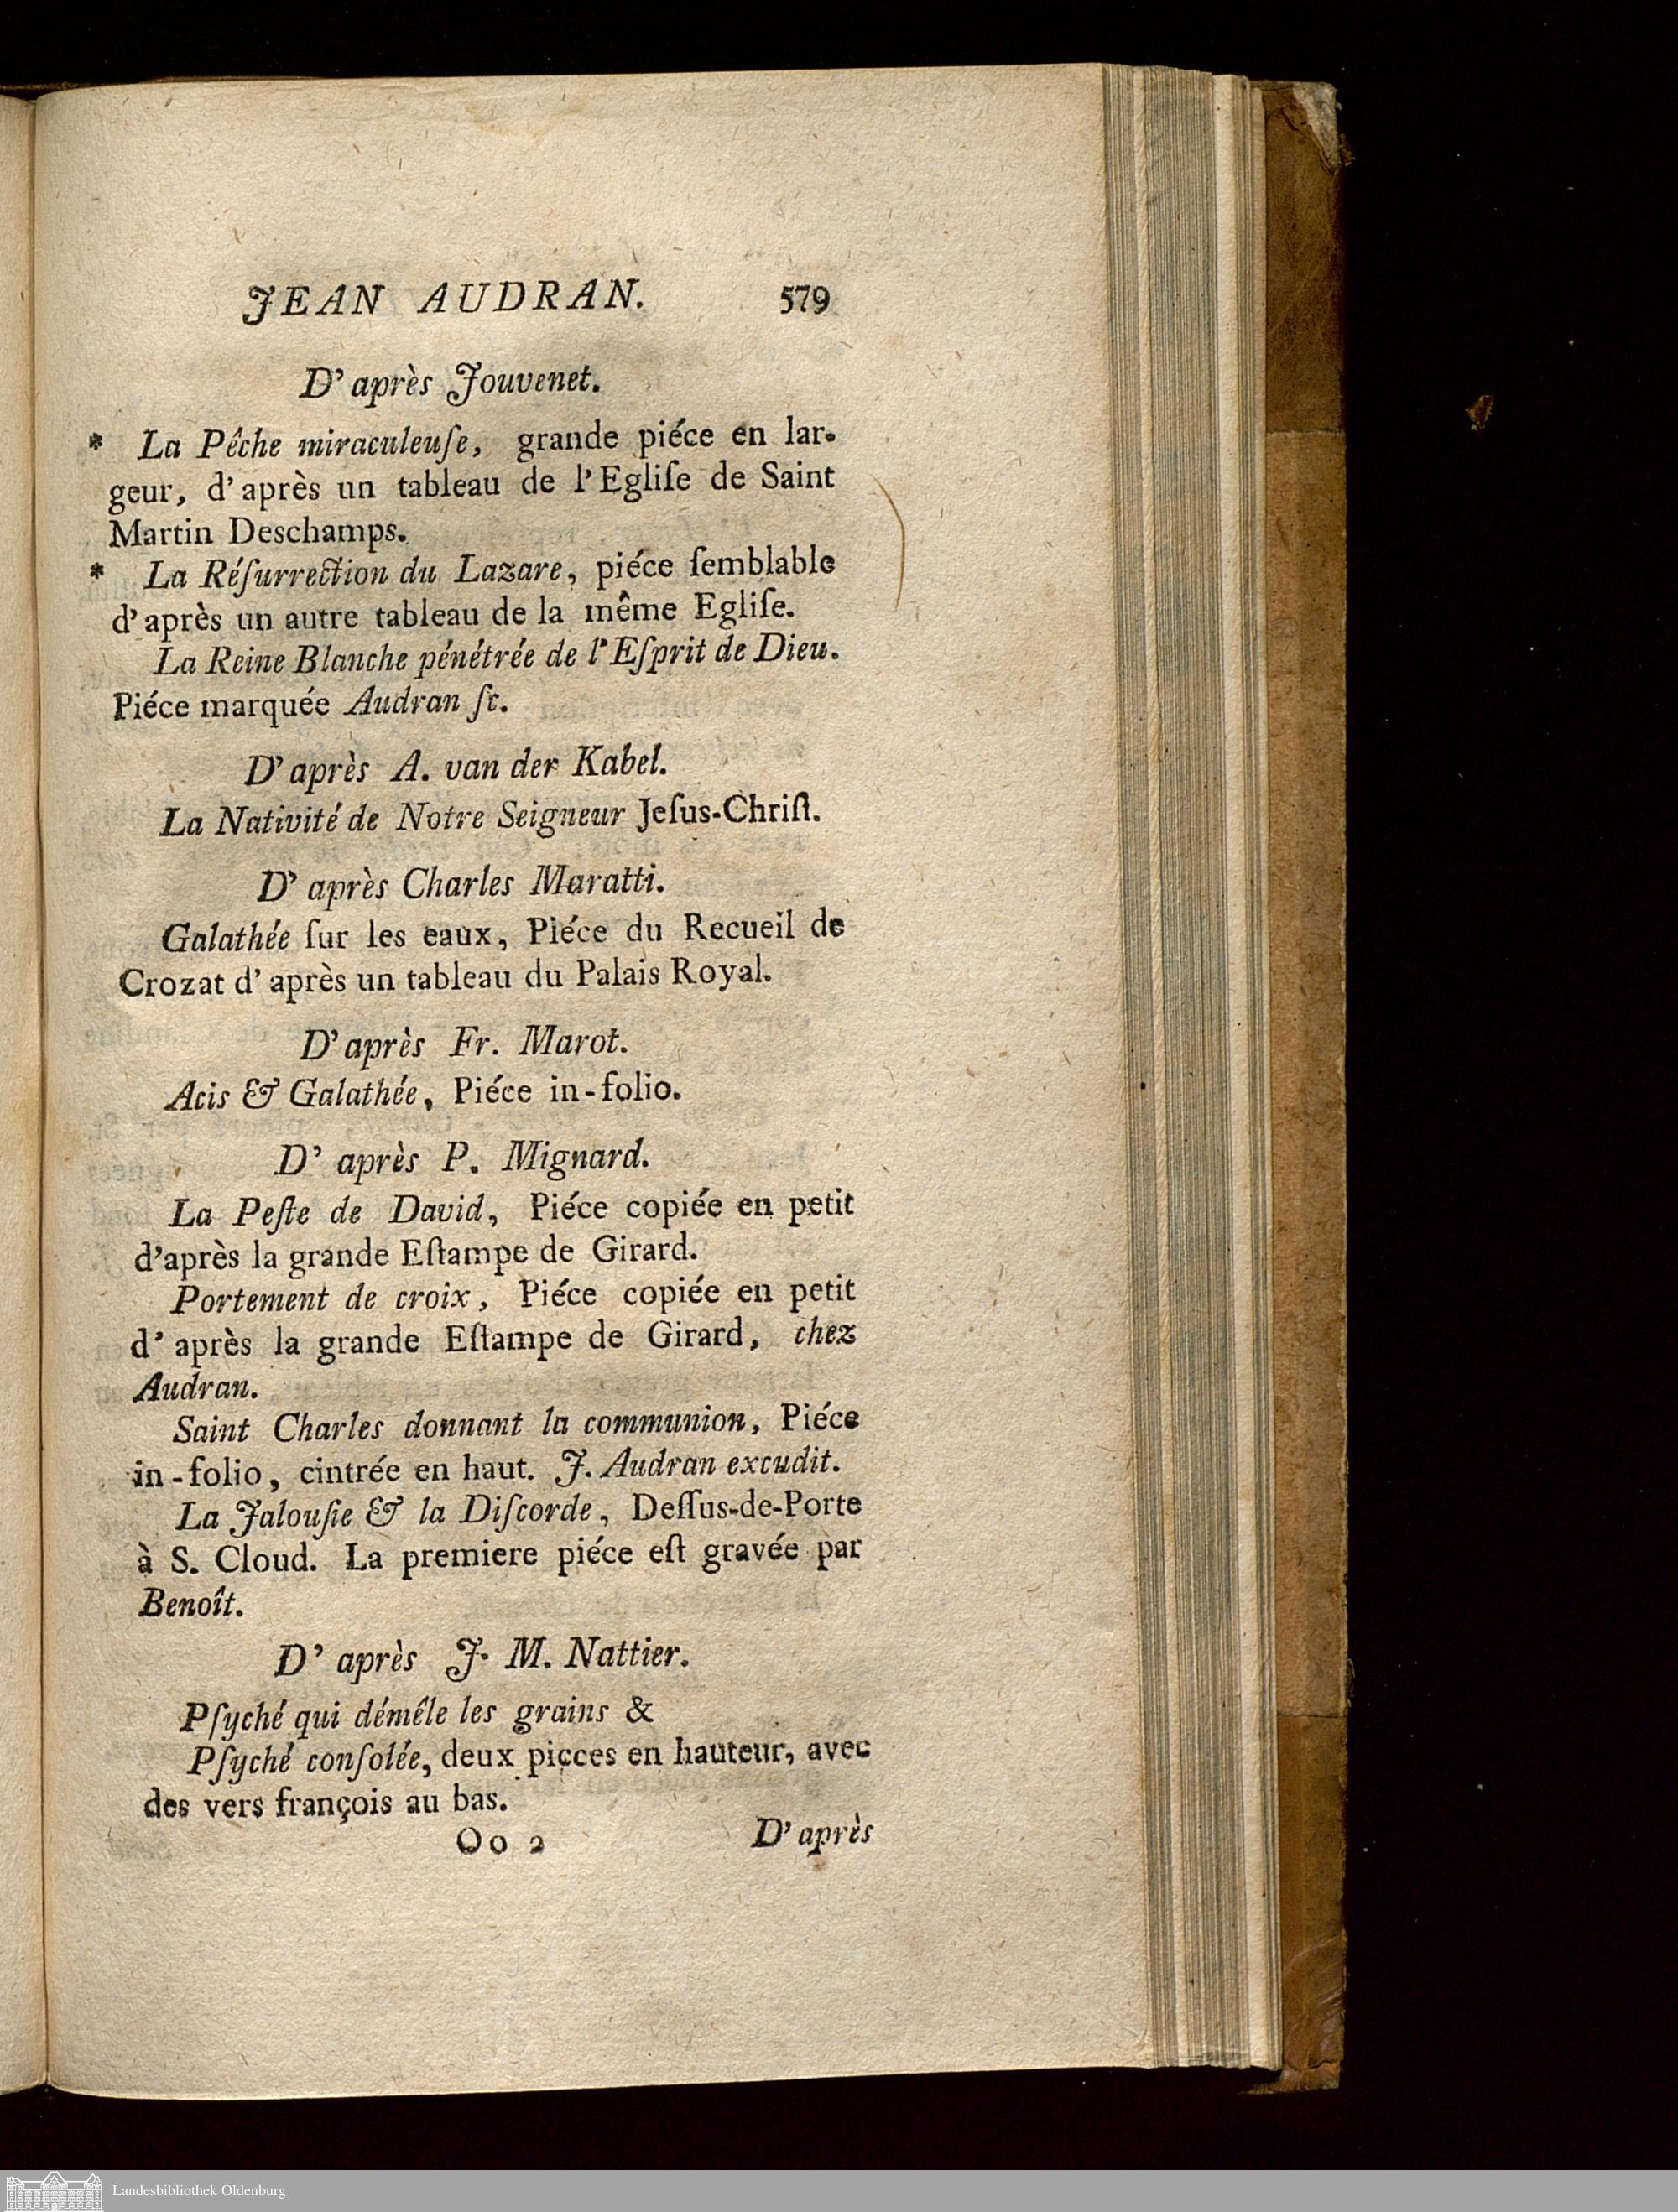 JEAN AUDRAN. 579
D' après Jouvenet.
* La Pêche miraculeuſe, grande piéce en lar-
geur, d' après un tableau de l' Egliſe de Saint
Martin Deschamps.
* La Réſurrection du Lazare, piéce ſemblable
d' après un autre tableau de la même Egliſe.
La Reine Blanche pénétrée de l' Eſprit de Dieu.
Piéce marquée Audran ſc.
D' après A. van der Kabel.
La Nativité de Notre Seigneur Jeſus-Chriſt.
D' après Charles Maratti.
Galathée ſur les eaux, Piéce du Recueil de
Crozat d' après un tableau du Palais Royal.
D' après Fr. Marot.
Acis & Galathée, Piéce in-folio.
D' après P. Mignard.
La Peſte de David, Piéce copiée en petit
d'après la grande Eſtampe de Girard.
Portement de croix, Piéce copiée en petit
d' après la grande Eſtampe de Girard, chez
Audran.
Saint Charles donnant la communion, Piéce
in-folio, cintrée en haut. J. Audran excudit.
La Jalouſie & la Diſcorde, Deſſus-de-Porte
à S. Cloud. La premiere piéce eſt gravée par
Benoît.
D' après J. M. Nattier.
Pſyché qui démêle les grains &
Pſyché conſolée, deux pieces en hauteur, avec
des vers françois au bas.
Oo 2 D' après
Landesbibliothek Oldenburg